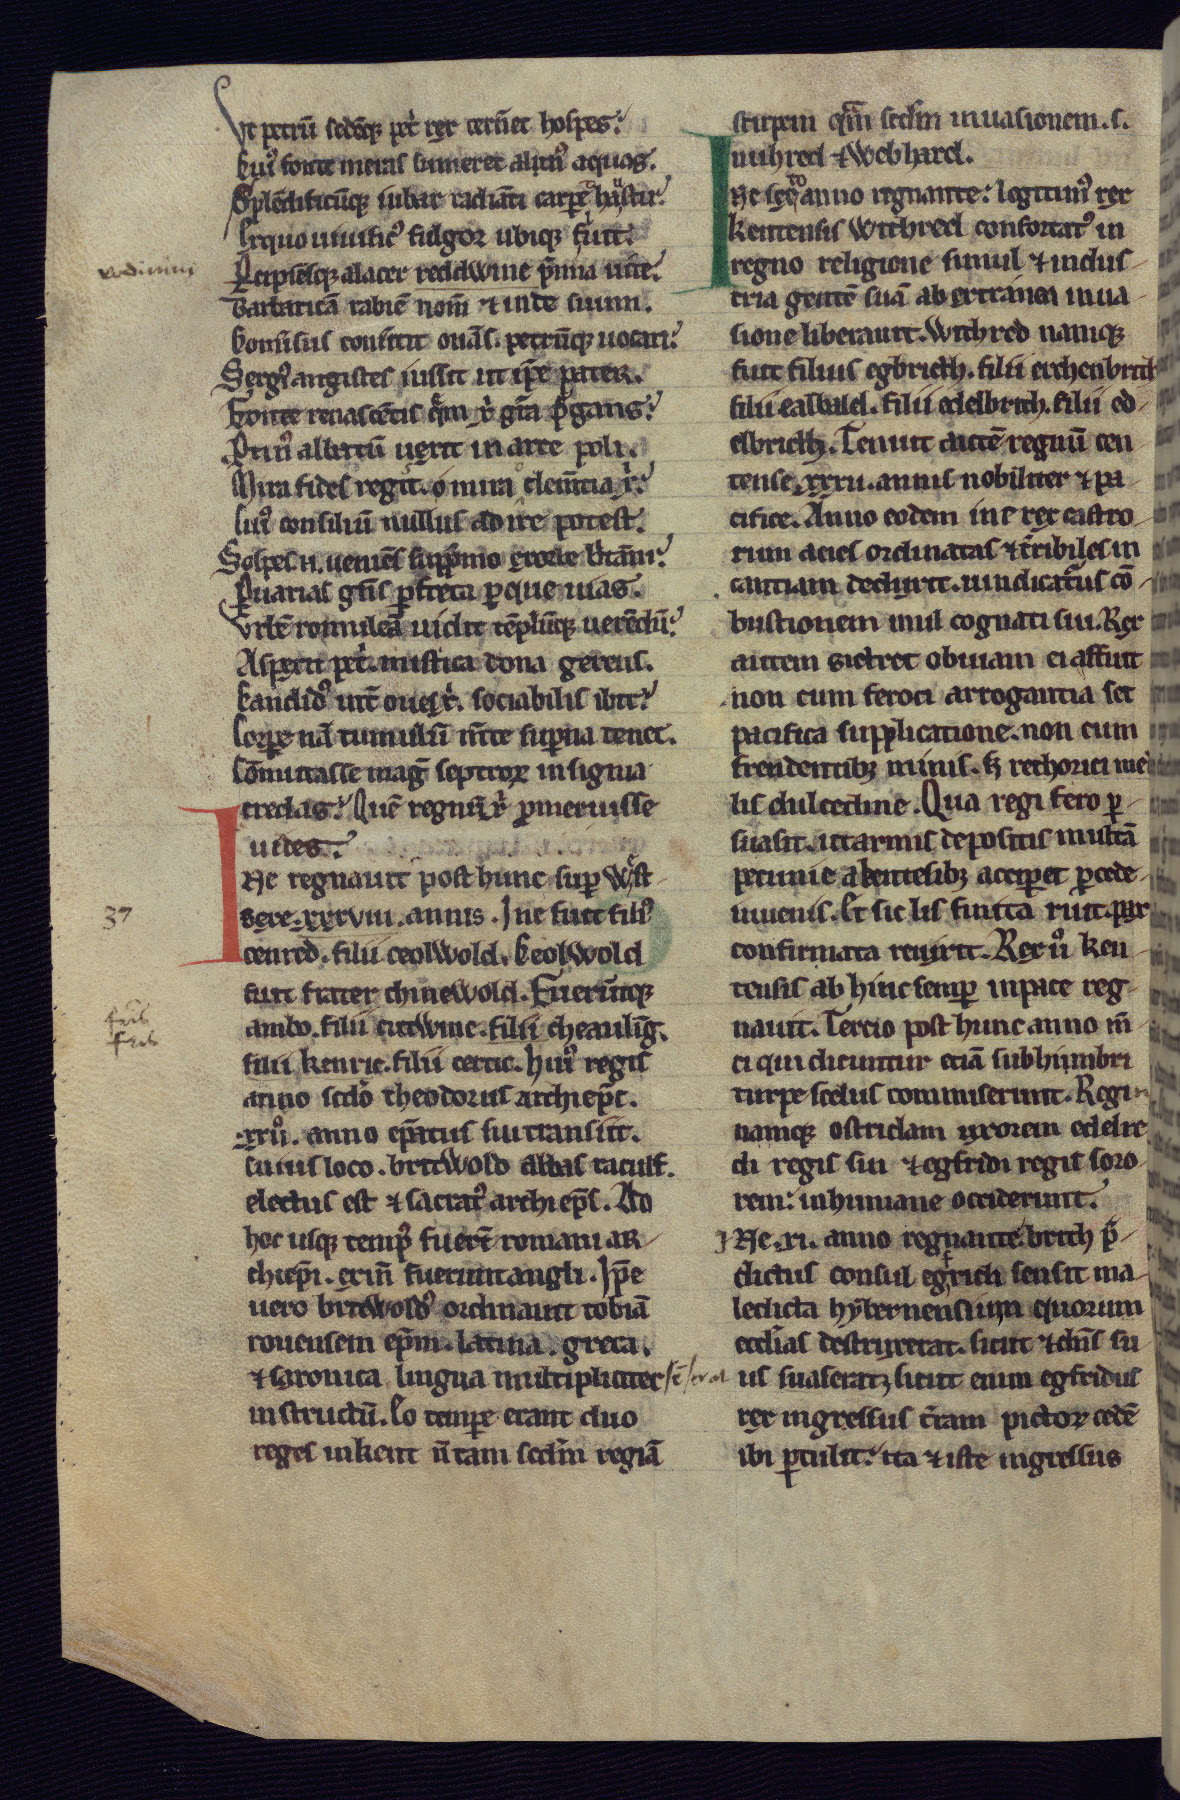 Vt petrū sedēq; petͥ rex cernˀet hospes.
Cuiꝰ fonte meras sumeret almꝰ aquas.
Splēdificūq; iubar radianti carperͣ haͧstu.
Ex quo uiuificꝰ fulgor ubiq; fluit.
Percipiēsq; alacer rediuiue p̄mia uite.
Barbaricā rabiē nom̄ & inde suum.
Conuersus conuertit ouās. petrūq; uocari.
Sergiꝰ antistes iussit ut ip̄e pater.
Fonte renascētis quē xp̄i gr̄a purgans.
Protinꝰ albatū uexit in arce poli.
Mira fides regis. o mira clementia xp̄i.
Cuiꝰ consiliū nullus adire potest.
Sospes n. ueniēs supremo ex orbe britāni.
P uarias gentes p freta pque uias.
Vrbē romuleā uidit tēplūq; uerēdū.
Aspexit petͥ mistica dona gerens.
Candidꝰ inte͛ oues xp̄i. sociabilis ibit.
Corpe nā tumulū m̄te superna tenet.
Cōmutasse magˢ sceptroꝝ insignia
credas. Quē regnū xp̄i pmeruisse
uides.
INe regnauit post hunc super West
sexe. xxxviii. annis. Ine fuit filiꝰ
cenred. filii ceolWold. CeolWold
fuit frater chineWold. Fuerūtq;
ambo. filii cutWine. filii cheauling.
filii kenric. filii certic. Huiꝰ regis
anno scdo theodorus archiepc.
xxͦii. anno ep̄atus sui transiit.
Cuius loco. britWold abbas raculf.
electus est & sacratꝰ archiep̄s. Ad
hoc usq; tempꝰ fuer̄t romani ar
chiep̄i. exin̄ fuerunt angli. Ip̄e
uero britWoldꝰ ordinauit tobiā
rouensem ep̄m. latina. greca.
& saxonica lingua multipliciter
instructū. Eo tempe erant duo
reges in kent n̄ tam scdm regiā
stirpem qͣm scdm inuasionem. s.
uuihred & Webhard.
INe secͩo anno regnante: legitimꝰ rex
kentensis Withred confortatꝰ in
regno religione simul & indus
tria gentē suā ab extranea inua
sione liberauit. Withred namq;
fuit filius egbricth. filii erchenbrict
filii ealbald. filii edelbrich. filii ed
elbricth. Tenuit autē regnū cen
tense. xxxii. annis nobiliter & pa
cifice. Anno eodem ine rex castro
rum acies ordinatas & tˀribiles in
cantiam deduxit. uindicatˀus cō
bustionem mul cognati sui. Rex
autem wictret obuiam ei affuit
non cum feroci arrogantia set
pacifica supplicatione. non cum
frendentib; minis. s; rethorici mel
lis dulcedine. Qua regi fero p
suasit. ut armis depositis multā
pecunie a kentesib; acciperet p cede
iuuenis. Et sic lis finita fuit. pax
confirmata reuixit. Rex ū ken
tensis ab hinc semp in pace reg
nauit. Tercio post hunc anno m̄
ci qui dicuntur eciā subhimbri
turpe scelus commiserunt. Regi
namq; ostridam uxorem edelre
di regis sui & egfridi regis soro
rem: inhumane occiderunt.
INe. xi. anno regnante. brith p̄
dictus consul egfrich sensit ma
ledicta hybernensium quorum
ecclias destruxerat. sicut & dn̄s su
us suaserat. sicut enim egfridus
rex ingressus tˀram pictoꝝ cedē
ibi ptulit. ita & iste ingressus
37